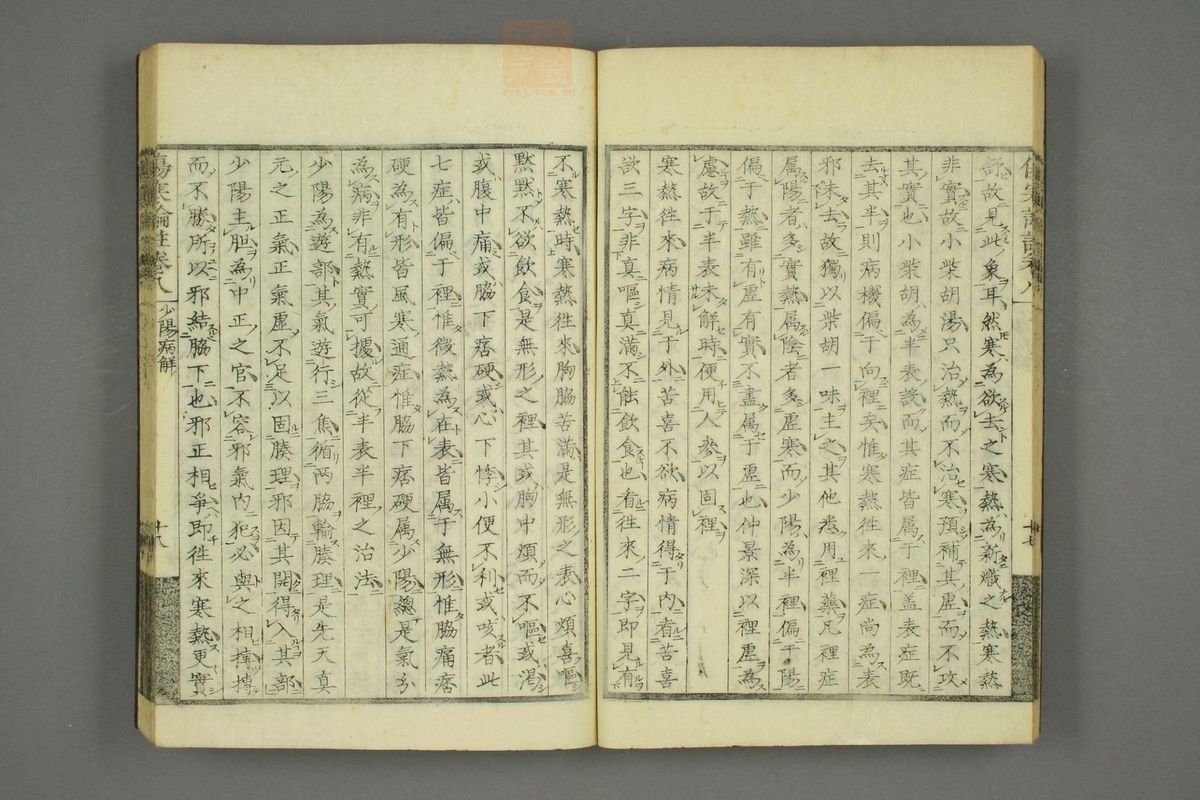 舒故見此象耳然寒為欲去之寒熱為新熾之熱寒熱
非實故小柴胡湯只治熱而不治寒預補其虛而不攻
其實也小柴胡為半表設而其症皆属于裡盖表症既
去其半則病機偏于向裡矣惟寒熱徃來一症尚為表
邪未去故獨以柴胡一味主之其他悉用裡藥凡裡症
属陽者多實熱属陰者多虛寒而少陽為半裡偏于陽
偏于熱雖有虛有實不盡属于虛也仲景深以裡虛為
慮故于半表未觧時便用人參以固裡
寒熱徃來病情見于外苦喜不欲病情得于内看苦喜
欲三字非真嘔真滿不能飲食也看徃來二字即見有
不寒熱時寒熱徃來胸脇苦滿是無形之表心煩喜嘔
默默不欲飲食是無形之裡其或胸中煩而不嘔或渴
或腹中痛或脇下痞硬或心下悸小便不利或咳者此
七症皆偏于裡惟微熱為在表皆属于無形惟脇痛痞
硬為有形皆風寒通症惟脇下痞硬属少陽總是氣分
為病非有熱實可據故從半表半裡之治法
少陽為遊部其氣遊行三焦循两脇輸腠理是先天真
元之正氣正氣虛不足以固腠理邪因其開得入其部
少陽主胆為中正之官不容邪氣内犯必與之相搏搏
而不勝所以邪結脇下也邪正相爭即徃來寒熱更實
傷寒論註卷八 少陽病解 十八